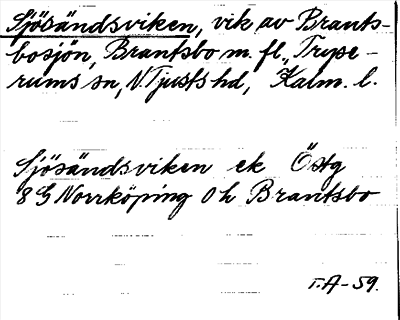 Sjösändsviken, vik av Brants-
bosjön, Brantsbo m. fl., Trype-
rums sn, N. Tjusts hd, Kalm. l.
Sjösändsviken ek Östg
8 G Norrköping 0 h Brantsbo
T.A-59.